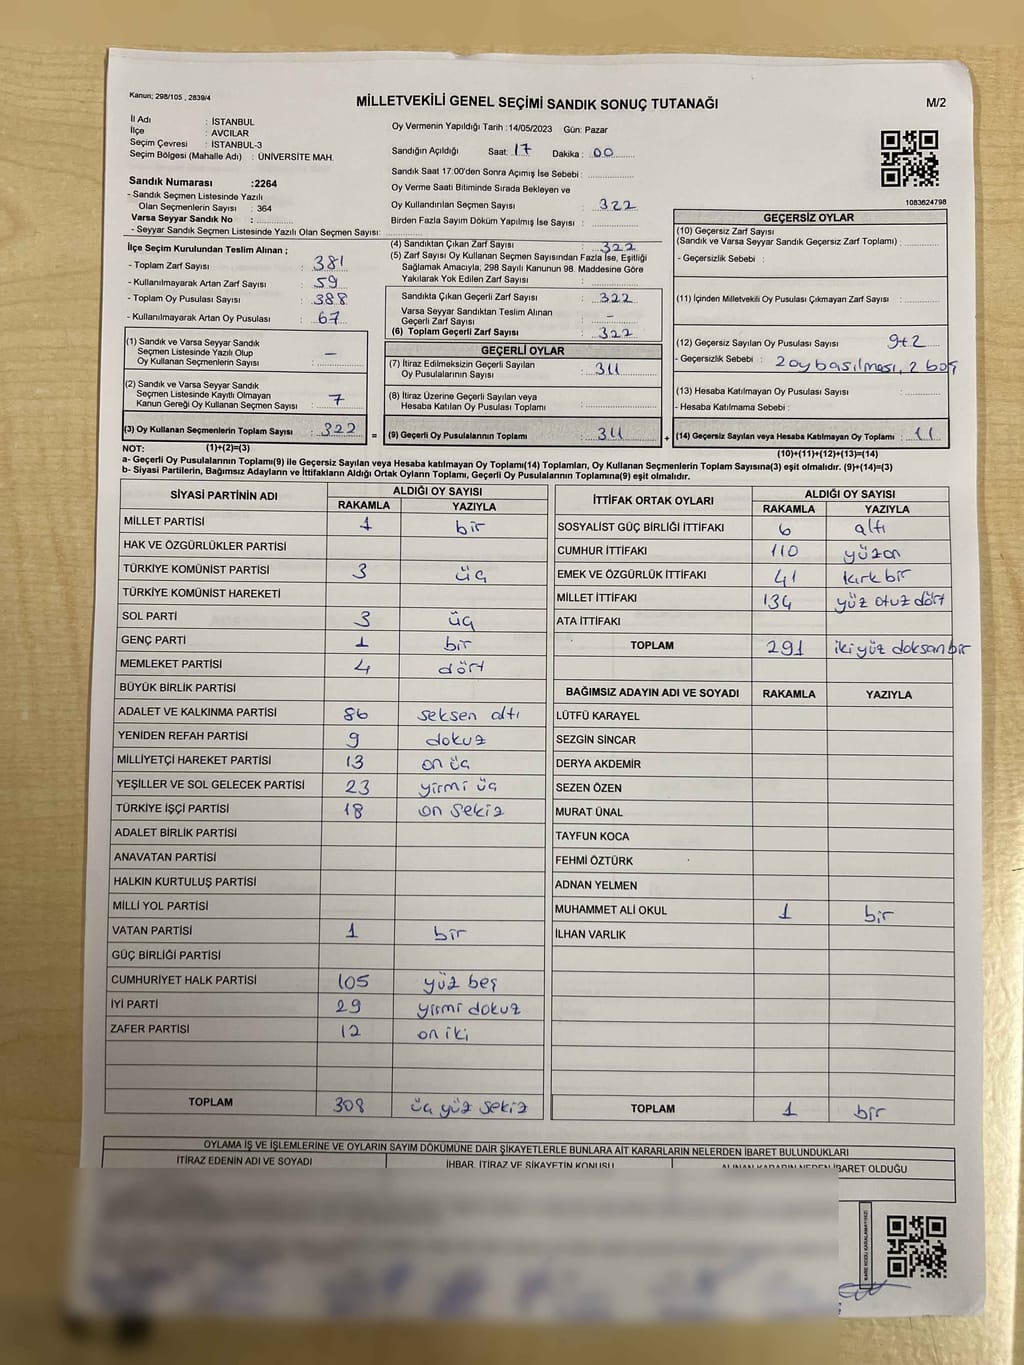 Kanun; 298/105 , 2839/4
MİLLETVEKİLİ GENEL SEÇİMİ SANDIK SONUÇ TUTANAĞI
M/2
İl Adı : İSTANBUL
İlçe : AVCILAR
Seçim Çevresi : İSTANBUL-3
Seçim Bölgesi (Mahalle Adı) : ÜNİVERSİTE MAH.
Sandık Numarası :2264
- Sandık Seçmen Listesinde Yazılı
Olan Seçmenlerin Sayısı : 364
Varsa Seyyar Sandık No :
- Seyyar Sandık Seçmen Listesinde Yazılı Olan Seçmen Sayısı:
Oy Vermenin Yapıldığı Tarih :14/05/2023 Gün: Pazar
Sandığın Açıldığı Saat: 17 Dakika : 00
Sandık Saat 17:00'den Sonra Açımış İse Sebebi :
Oy Verme Saati Bitiminde Sırada Bekleyen ve
Oy Kullandırılan Seçmen Sayısı : 322
Birden Fazla Sayım Döküm Yapılmış İse Sayısı :
1083624798
İlçe Seçim Kurulundan Teslim Alınan ;
- Toplam Zarf Sayısı : 381
- Kullanılmayarak Artan Zarf Sayısı : 59
- Toplam Oy Pusulası Sayısı : 388
- Kullanılmayarak Artan Oy Pusulası : 67
(1) Sandık ve Varsa Seyyar Sandık
Seçmen Listesinde Yazılı Olup
Oy Kullanan Seçmenlerin Sayısı : –
(2) Sandık ve Varsa Seyyar Sandık
Seçmen Listesinde Kayıtlı Olmayan
Kanun Gereği Oy Kullanan Seçmen Sayısı : 7
(3) Oy Kullanan Seçmenlerin Toplam Sayısı : 322
(4) Sandıktan Çıkan Zarf Sayısı : 322
(5) Zarf Sayısı Oy Kullanan Seçmen Sayısından Fazla İse, Eşitliği
Sağlamak Amacıyla, 298 Sayılı Kanunun 98. Maddesine Göre
Yakılarak Yok Edilen Zarf Sayısı :
Sandıkta Çıkan Geçerli Zarf Sayısı : 322
Varsa Seyyar Sandıktan Teslim Alınan
Geçerli Zarf Sayısı : –
(6) Toplam Geçerli Zarf Sayısı : 322
GEÇERLİ OYLAR
(7) İtiraz Edilmeksizin Geçerli Sayılan
Oy Pusulalarının Sayısı : 311
(8) İtiraz Üzerine Geçerli Sayılan veya
Hesaba Katılan Oy Pusulası Toplamı :
= (9) Geçerli Oy Pusulalarının Toplamı : 311
GEÇERSİZ OYLAR
(10) Geçersiz Zarf Sayısı
(Sandık ve Varsa Seyyar Sandık Geçersiz Zarf Toplamı) :
- Geçersizlik Sebebi :
(11) İçinden Milletvekili Oy Pusulası Çıkmayan Zarf Sayısı :
(12) Geçersiz Sayılan Oy Pusulası Sayısı : 9+2
- Geçersizlik Sebebi : 2 oy basılması, 2 boş
(13) Hesaba Katılmayan Oy Pusulası Sayısı :
- Hesaba Katılmama Sebebi :
+ (14) Geçersiz Sayılan veya Hesaba Katılmayan Oy Toplamı : 11
NOT: (1)+(2)=(3)
(10)+(11)+(12)+(13)=(14)
a- Geçerli Oy Pusulalarının Toplamı(9) ile Geçersiz Sayılan veya Hesaba katılmayan Oy Toplamı(14) Toplamları, Oy Kullanan Seçmenlerin Toplam Sayısına(3) eşit olmalıdır. (9)+(14)=(3)
b- Siyasi Partilerin, Bağımsız Adayların ve İttifakların Aldığı Ortak Oyların Toplamı, Geçerli Oy Pusulalarının Toplamına(9) eşit olmalıdır.
SİYASİ PARTİNİN ADI ALDIĞI OY SAYISI
RAKAMLA YAZIYLA
MİLLET PARTİSİ 1 bir
HAK VE ÖZGÜRLÜKLER PARTİSİ
TÜRKİYE KOMÜNİST PARTİSİ 3 üç
TÜRKİYE KOMÜNİST HAREKETİ
SOL PARTİ 3 üç
GENÇ PARTİ 1 bir
MEMLEKET PARTİSİ 4 dört
BÜYÜK BİRLİK PARTİSİ
ADALET VE KALKINMA PARTİSİ 86 seksen altı
YENİDEN REFAH PARTİSİ 9 dokuz
MİLLİYETÇİ HAREKET PARTİSİ 13 on üç
YEŞİLLER VE SOL GELECEK PARTİSİ 23 yirmi üç
TÜRKİYE İŞÇİ PARTİSİ 18 on sekiz
ADALET BİRLİK PARTİSİ
ANAVATAN PARTİSİ
HALKIN KURTULUŞ PARTİSİ
MİLLİ YOL PARTİSİ
VATAN PARTİSİ 1 bir
GÜÇ BİRLİĞİ PARTİSİ
CUMHURİYET HALK PARTİSİ 105 yüz beş
İYİ PARTİ 29 yirmi dokuz
ZAFER PARTİSİ 12 on iki
TOPLAM 308 üç yüz sekiz
İTTİFAK ORTAK OYLARI ALDIĞI OY SAYISI
RAKAMLA YAZIYLA
SOSYALİST GÜÇ BİRLİĞİ İTTİFAKI 6 altı
CUMHUR İTTİFAKI 110 yüzon
EMEK VE ÖZGÜRLÜK İTTİFAKI 41 kırk bir
MİLLET İTTİFAKI 134 yüz otuz dört
ATA İTTİFAKI
TOPLAM 291 iki yüz doksan bir
BAĞIMSIZ ADAYIN ADI VE SOYADI RAKAMLA YAZIYLA
LÜTFÜ KARAYEL
SEZGİN SİNCAR
DERYA AKDEMİR
SEZEN ÖZEN
MURAT ÜNAL
TAYFUN KOCA
FEHMİ ÖZTÜRK
ADNAN YELMEN
MUHAMMET ALİ OKUL 1 bir
İLHAN VARLIK
TOPLAM 1 bir
OYLAMA İŞ VE İŞLEMLERİNE VE OYLARIN SAYIM DÖKÜMÜNE DAİR ŞİKAYETLERLE BUNLARA AİT KARARLARIN NELERDEN İBARET BULUNDUKLARI
İTİRAZ EDENİN ADI VE SOYADI İHBAR, İTİRAZ VE ŞİKAYETİN KONUSU ALINAN KARARIN NEDEN İBARET OLDUĞU
KARE KODU KARALAMAYINIZ!